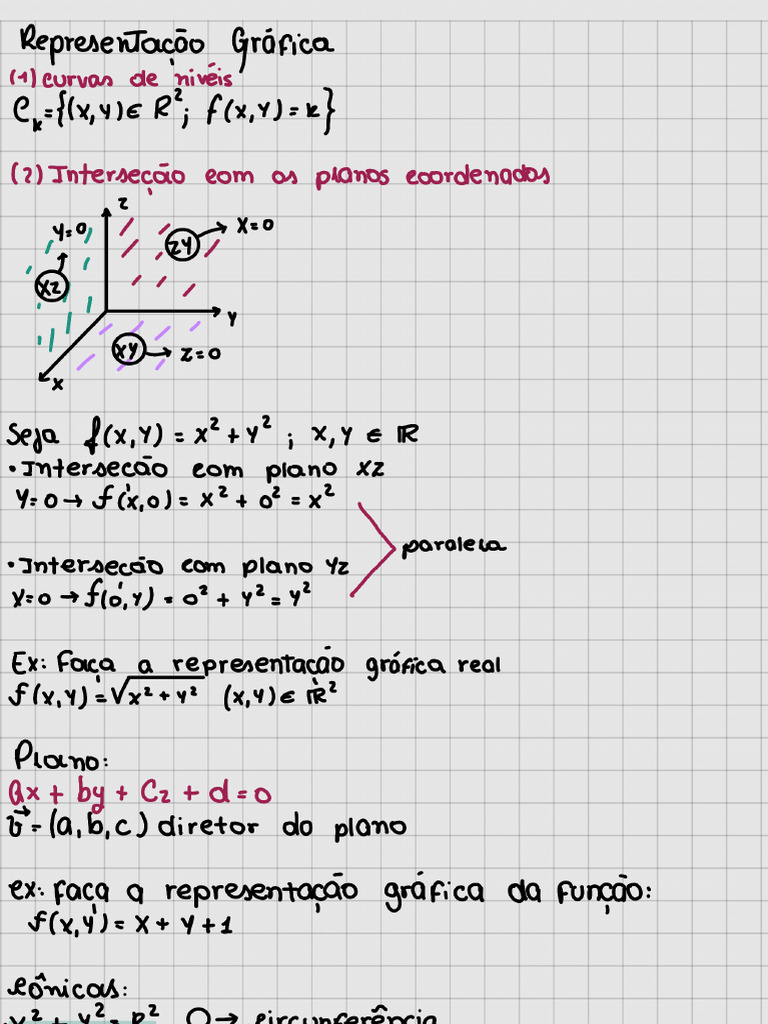 Representação Gráfica
(1) curvas de nivéis
C_k = {(x,y) ∈ R²; f(x,y) = k}
(2) Interseção com os planos coordenados
z
y=0
zy
x=0
xz
y
xy
z=0
x
Seja f(x,y) = x² + y² ; x,y ∈ ℝ
• Interseção com plano xz
y=0 → f(x,0) = x² + 0² = x²
parabola
• Interseção com plano yz
x=0 → f(0,y) = 0² + y² = y²
Ex: Faça a representação gráfica real
f(x,y) = √x² + y² (x,y) ∈ ℝ²
Plano:
ax + by + cz + d = 0
v⃗ = (a,b,c) diretor do plano
ex: faça a representação gráfica da função:
f(x,y) = x + y + 1
cônicas:
x² + y² = R² O → circunferência